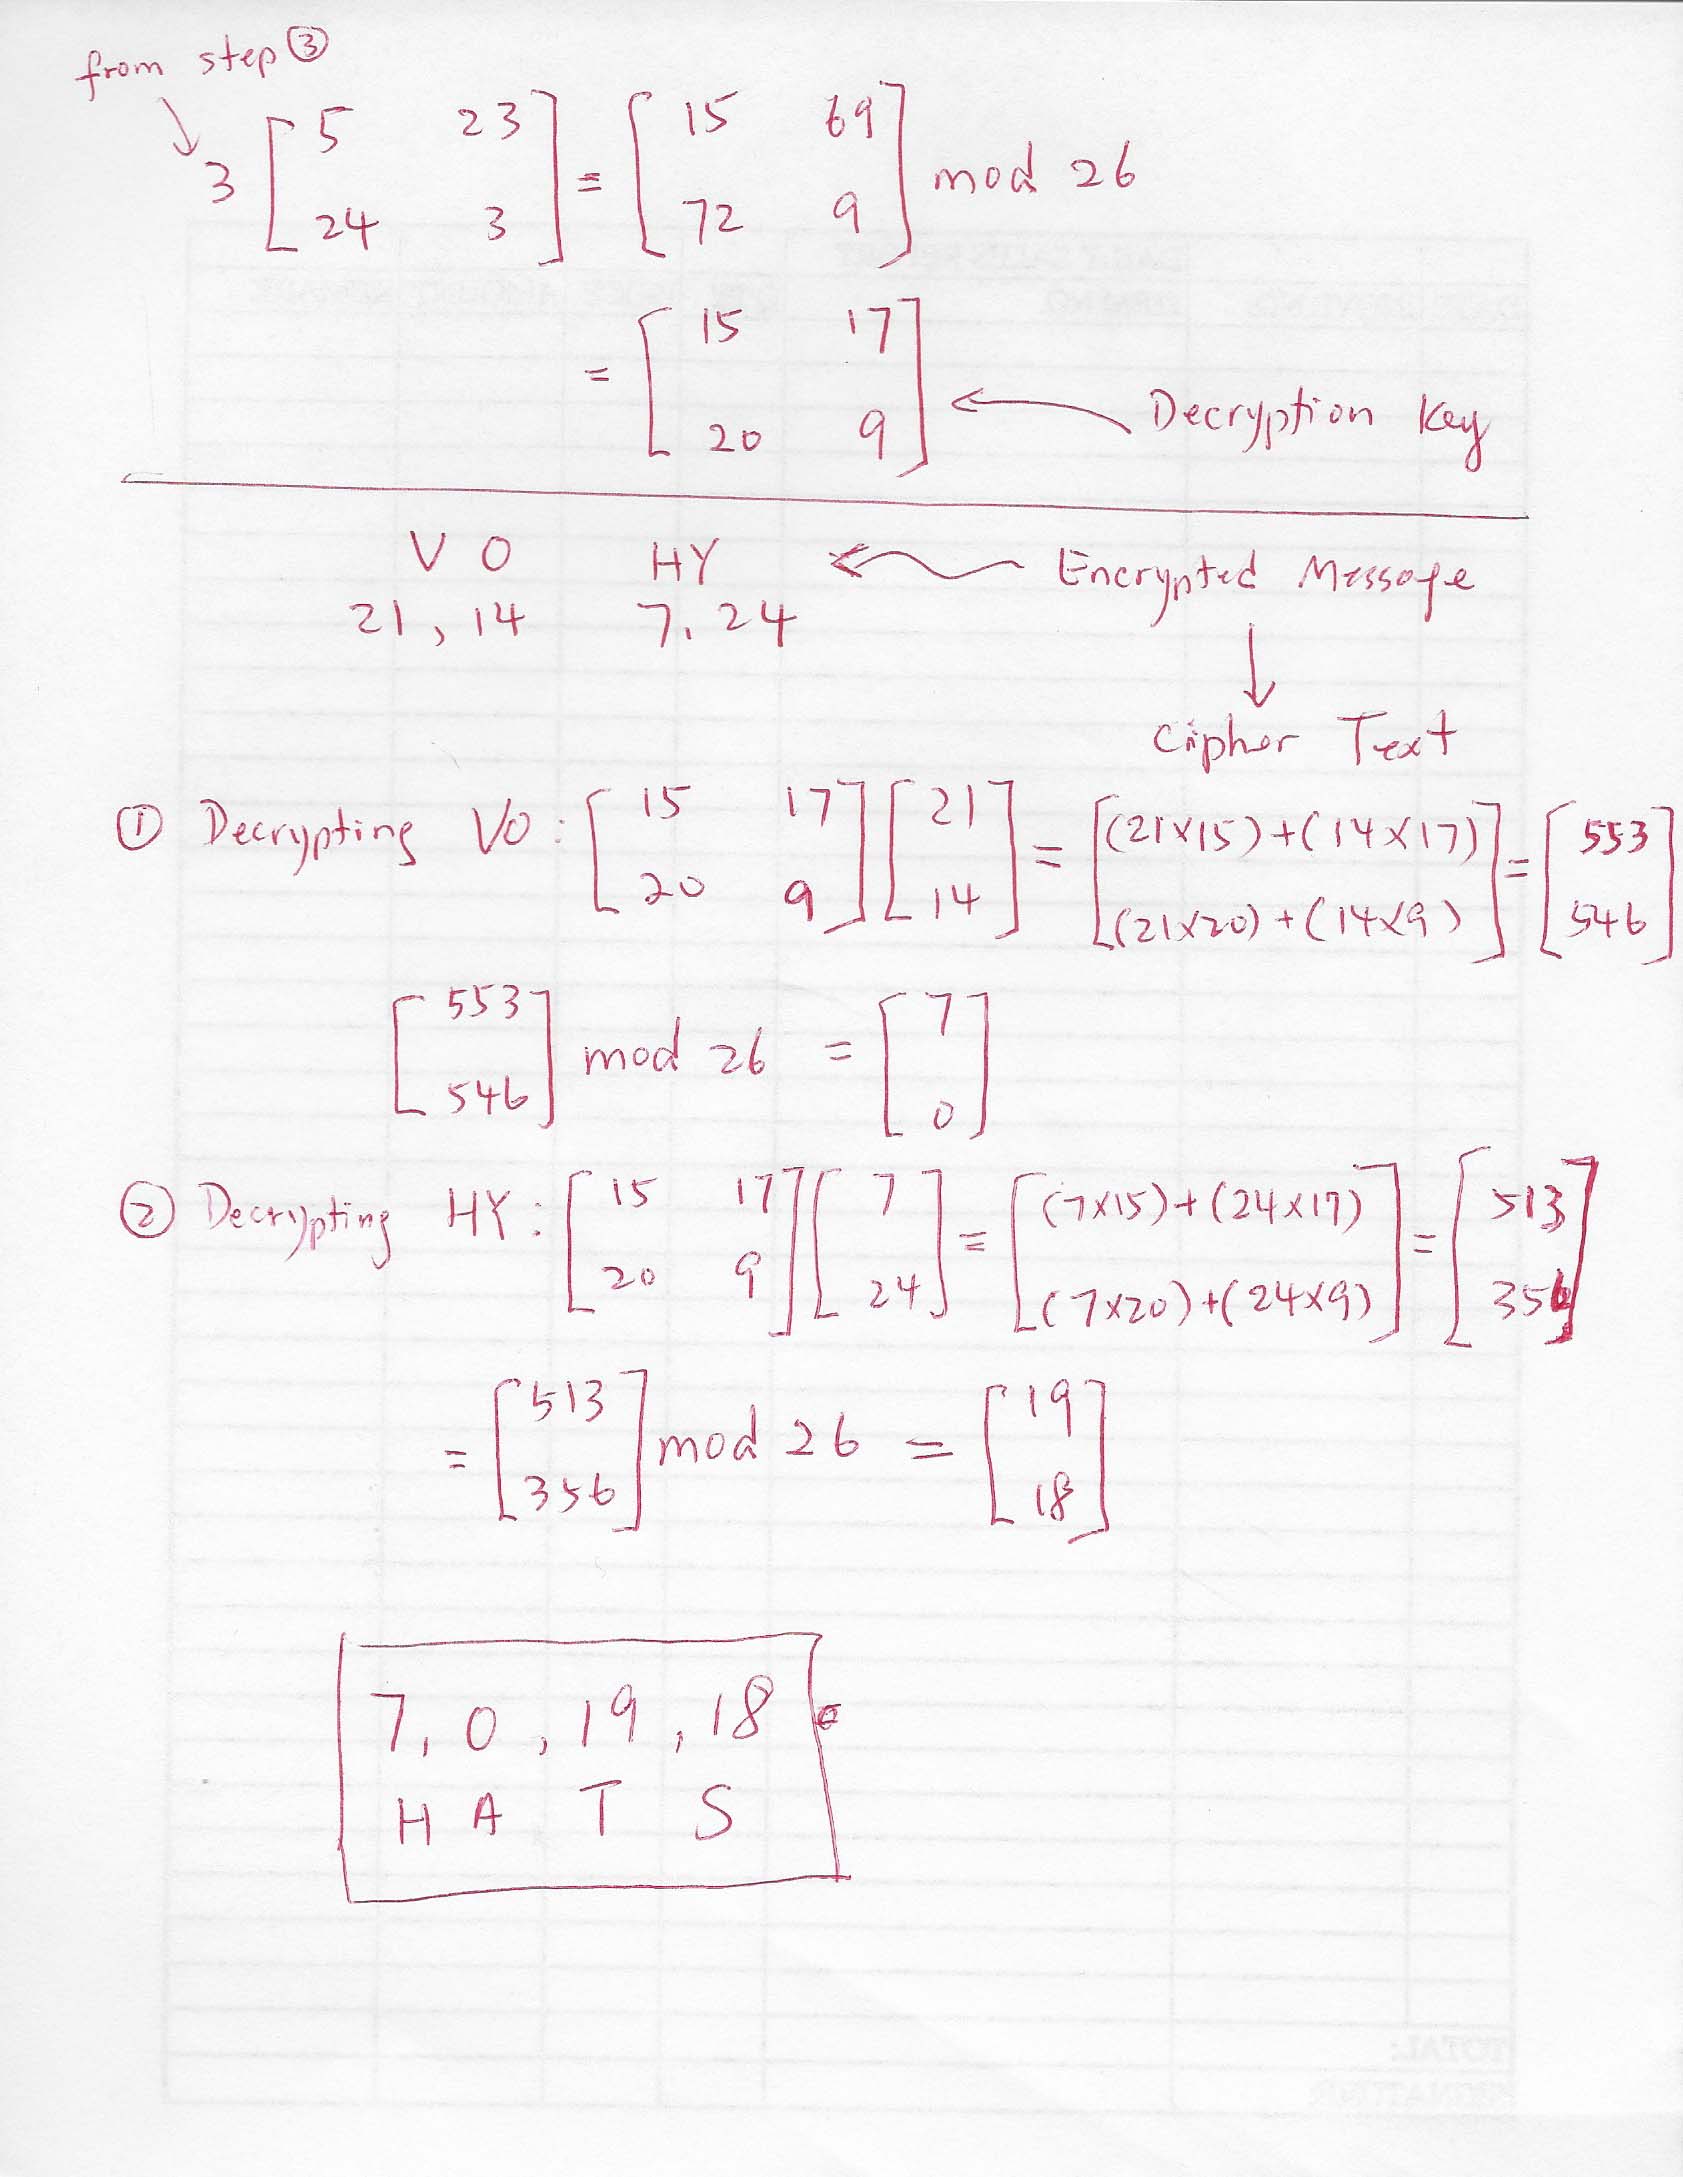 from step ③
3 [5 23; 24 3] = [15 69; 72 9] mod 26
= [15 17; 20 9] ← Decryption Key
V O HY ← Encrypted Message
21, 14 7, 24
↓
Cipher Text
① Decrypting VO: [15 17; 20 9] [21; 14] = [(21×15)+(14×17); (21×20)+(14×9)] = [553; 546]
[553; 546] mod 26 = [7; 0]
② Decrypting HY: [15 17; 20 9] [7; 24] = [(7×15)+(24×17); (7×20)+(24×9)] = [513; 356]
= [513; 356] mod 26 = [19; 18]
7, 0, 19, 18
H A T S
TOTAL: